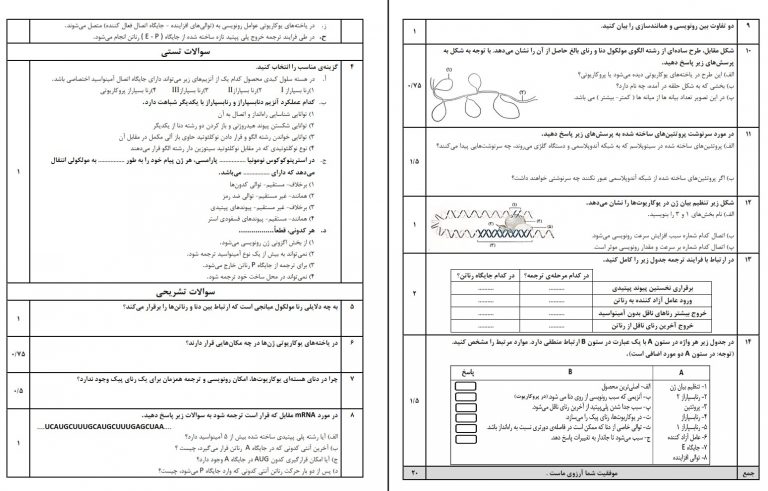 ز. در یاخته‌های یوکاریوتی عوامل رونویسی به (توالی‌های افزاینده - جایگاه اتصال فعال کننده) متصل می‌شوند.
ح. در طی فرایند ترجمه خروج پلی پپتید تازه ساخته شده از جایگاه ( E - P ) رناتن انجام می‌شود.
سوالات تستی
۴ گزینه‌ی مناسب را انتخاب کنید.
أ. در هسته سلول کبدی محصول کدام یک از آنزیم‌های زیر می‌تواند دارای جایگاه اتصال آمینواسید اختصاصی باشد.
۱)رنا بسپاراز I ۲)رنا بسپاراز II ۳)رنا بسپاراز III ۴)رنا بسپاراز پروکاریوتی
ب. کدام عملکرد آنزیم دنابسپاراز و رنابسپاراز با یکدیگر شباهت دارد.
۱) توانایی شناسایی راه‌انداز و اتصال به آن
۲) توانایی شکستن پیوند هیدروژنی و باز کردن دو رشته دنا از یکدیگر
۳) توانایی خواندن رشته الگو و قرار دادن نوکلئوتید حاوی باز آلی مکمل در مقابل آن
۴) نوع نوکلئوتیدی که در مقابل نوکلئوتید سیتوزین دار رشته الگو قرار می‌دهند
ج. در استرپتوکوکوس نومونیا ............ پارامسی، هر ژن پیام خود را به طور ............ به مولکولی انتقال
می‌دهد که دارای ............ می‌باشد.
۱) برخلاف- مستقیم- توالی کدون‌ها
۲) همانند- غیر مستقیم- توالی ضد رمز
۳) برخلاف- غیر مستقیم- پیوندهای پپتیدی
۴) همانند- مستقیم- پیوندهای فسفودی استر
د. هر کدونی، قطعاً............
۱) از بخش اگزونی ژن رونویسی می‌شود.
۲) نمی‌تواند به بیش از یک نوع آمینواسید ترجمه شود.
۳) برای ترجمه از جایگاه P رناتن خارج می‌شود.
۴) نمی‌تواند در محل ساخت خود ترجمه شود.
۱
سوالات تشریحی
۵ به چه دلایلی رنا مولکول میانجی است که ارتباط بین دنا و رناتن‌ها را برقرار می‌کند؟
۱
۶ در یاخته‌های یوکاریوتی ژن‌ها در چه مکان‌هایی قرار دارند؟
۰/۷۵
۷ چرا در دنای هسته‌ای یوکاریوت‌ها، امکان رونویسی و ترجمه همزمان برای یک رنای پیک وجود ندارد؟
۰/۵
۸ در مورد mRNA مقابل که قرار است ترجمه شود به سوالات زیر پاسخ دهید.
....UCAUGCUUUGCAUGCUUUGAGCUAA....
الف) آیا رشته پلی پپتیدی ساخته شده بیش از ۵ آمینواسید دارد؟
ب) آخرین آنتی کدونی که در جایگاه A رناتن قرار می‌گیرد، چیست؟
ج) آیا امکان قرارگیری کدون AUG در جایگاه A وجود دارد؟
د) پس از دو بار حرکت رناتن آنتی کدونی که وارد جایگاه P می‌شود، چیست؟
۱
۹ دو تفاوت بین رونویسی و همانندسازی را بیان کنید.
۱
۱۰ شکل مقابل، طرح ساده‌ای از رشته الگوی مولکول دنا و رنای بالغ حاصل از آن را نشان می‌دهد. با توجه به شکل به
پرسش‌های زیر پاسخ دهید.
الف) این طرح در یاخته‌های یوکاریوتی دیده می‌شود یا پروکاریوتی؟
ب) بخشی که به شکل حلقه در آمده، چه نام دارد؟
پ) در این تصویر تعداد بیانه ها از میانه ها ( کمتر- بیشتر ) می باشد.
۰/۷۵
۱۱ در مورد سرنوشت پروتئین‌های ساخته شده به پرسش‌های زیر پاسخ دهید.
الف) پروتئین‌های ساخته شده در سیتوپلاسم که به شبکه آندوپلاسمی و دستگاه گلژی می‌روند، چه سرنوشت‌هایی پیدا می‌کنند؟
ب) اگر پروتئین‌های ساخته شده از شبکه آندوپلاسمی عبور نکنند چه سرنوشتی خواهند داشت؟
۱/۵
۱۲ شکل زیر تنظیم بیان ژن در یوکاریوت‌ها را نشان می‌دهد.
الف) نام بخش‌های ۱ و ۳ را بنویسید.
ب) اتصال کدام شماره سبب افزایش سرعت رونویسی می‌شود
پ) اتصال کدام شماره بر سرعت و مقدار رونویسی موثر است
۱
۱۳ در ارتباط با فرایند ترجمه جدول زیر را کامل کنید.
در کدام مرحله‌ی ترجمه؟ در کدام جایگاه رناتن؟
برقراری نخستین پیوند پپتیدی
ورود عامل آزاد کننده به رناتن
خروج بیشتر رناهای ناقل بدون آمینواسید
خروج آخرین رنای ناقل از رناتن
۲
۱۴ در جدول زیر هر واژه در ستون A با یک عبارت در ستون B ارتباط منطقی دارد. موارد مرتبط را مشخص کنید.
(توجه: در ستون A دو مورد اضافی است).
A B پاسخ
۱- تنظیم بیان ژن الف- اصلی‌ترین محصول
۲- رنابسپاراز ۲ ب- آنزیمی که سبب رونویسی از روی دنا می شود (در پروکاریوت)
۳- پروتئین پ- سبب جدا شدن پلی‌پپتید از آخرین رنای ناقل می‌شود.
۴- رنابسپاراز ت- در یوکاریوت‌ها، رنای پیک را می‌سازد.
۵- رنابسپاراز ۱ ث- توالی خاصی از دنا که ممکن است در فاصله‌ی دورتری نسبت به راه‌انداز باشد.
۶- عامل آزاد کننده ج- سبب می‌شود تا جاندار به تغییرات پاسخ دهد.
۷- جایگاه E
۸- توالی افزاینده
۱/۵
جمع موفقیت شما آرزوی ماست . ۲۰